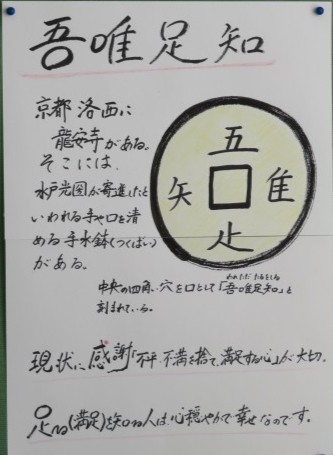 吾唯足知
京都 洛西に
龍安寺がある。
そこには、
水戸光圀が寄進したと
いわれる手や口を清
める手水鉢(つくばい)
がある。
五
矢 隹
止
中央の四角い穴を口として「吾唯足知」と
われただたるをしる
刻まれている。
現状に感謝「不平 不満を捨て、満足する心」が大切。
足る(満足)を知る人は、心穏やかで幸せなのです。